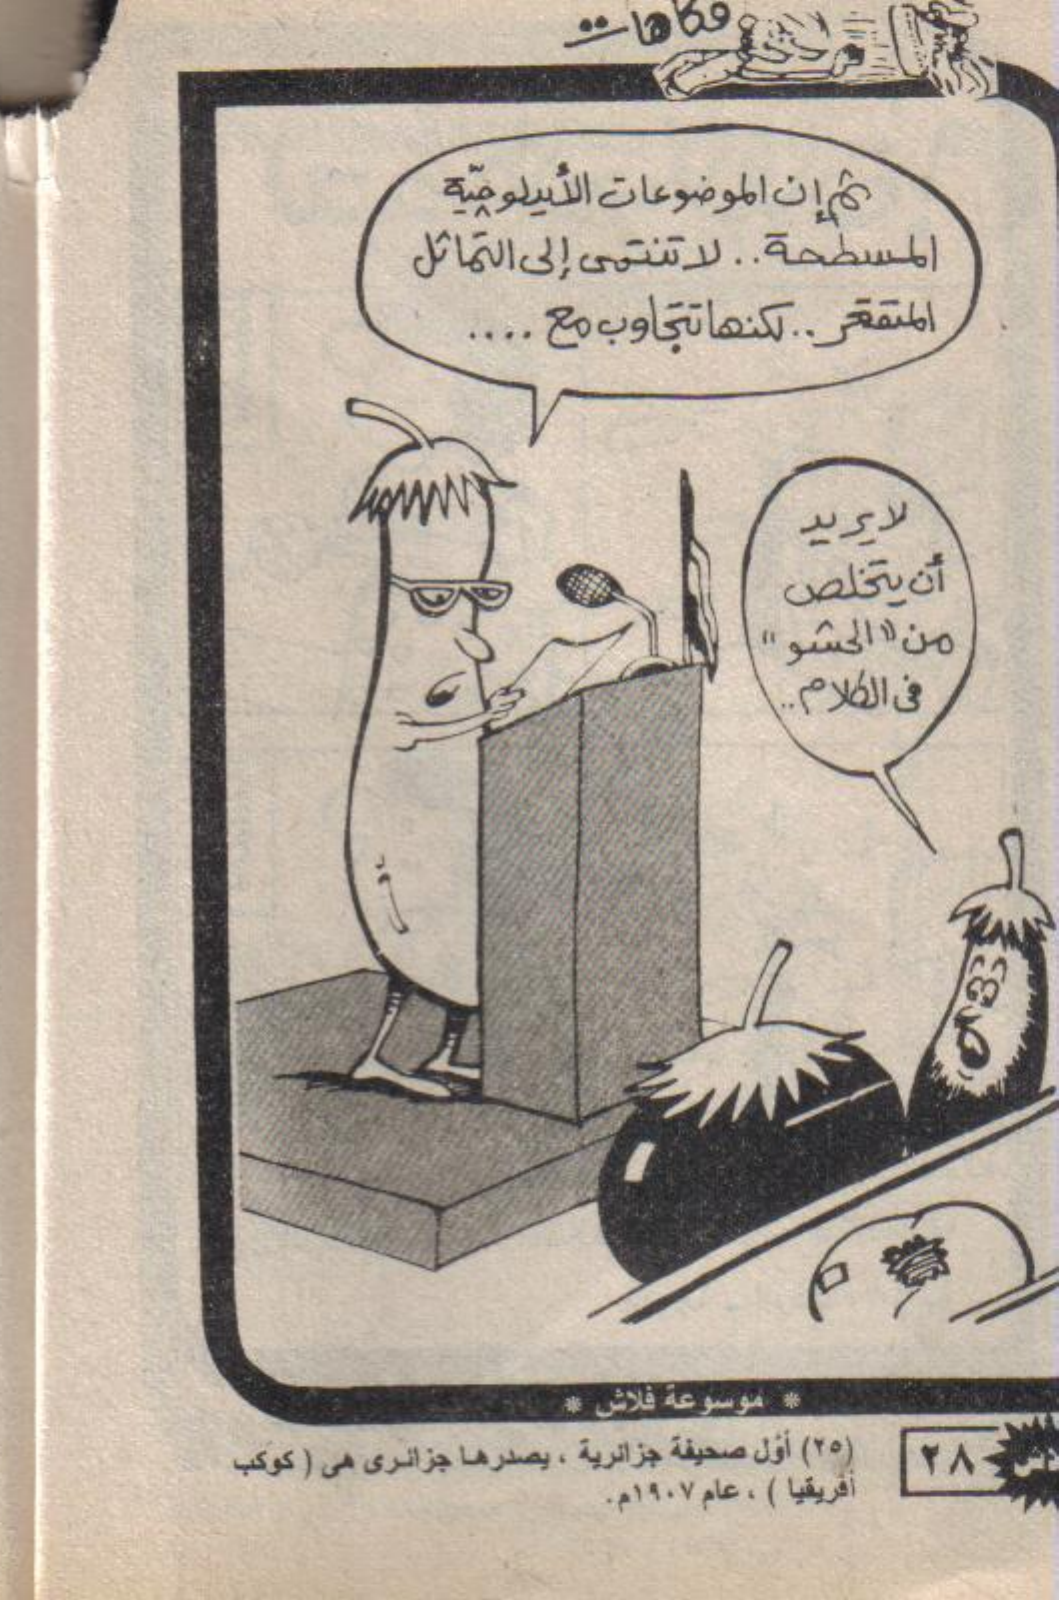 فكاهات..
ثم إن الموضوعات الأيدلوجيّة
المسطحة.. لا تنتمى إلى التماثل
المتقعر.. لكنها تتجاوب مع ....
لا يريد
أن يتخلص
من "الحشو"
فى الكلام..
* موسوعة فلاش *
(٢٥) أوّل صحيفة جزائرية ، يصدرها جزائرى هى ( كوكب
أفريقيا ) ، عام ١٩٠٧م.
٢٨